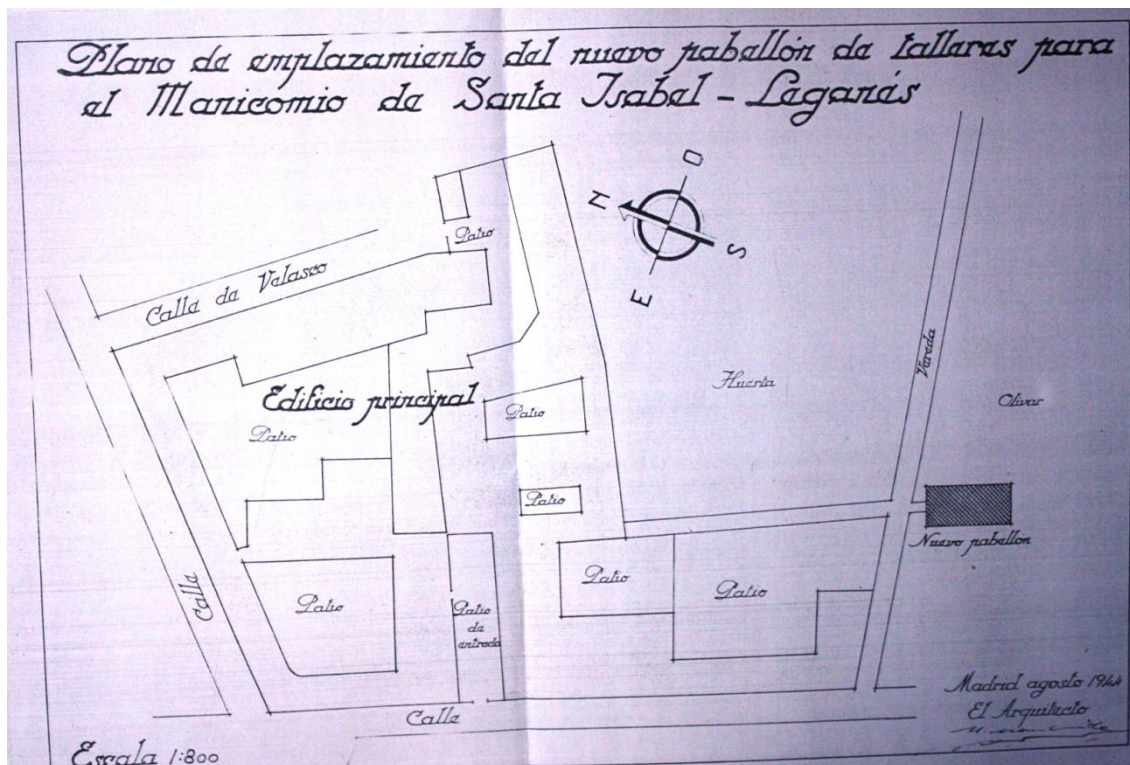 Plano de emplazamiento del nuevo pabellón de talleres para
el Manicomio de Santa Isabel - Leganés
N
O
S
E
Patio
Calle de Velasco
Vereda
Huerta
Olivar
Edificio principal
Patio
Patio
Patio
Nuevo pabellón
Calle
Patio
Patio
de
entrada
Patio
Patio
Calle
Madrid agosto 1944
El Arquitecto
Escala 1:800